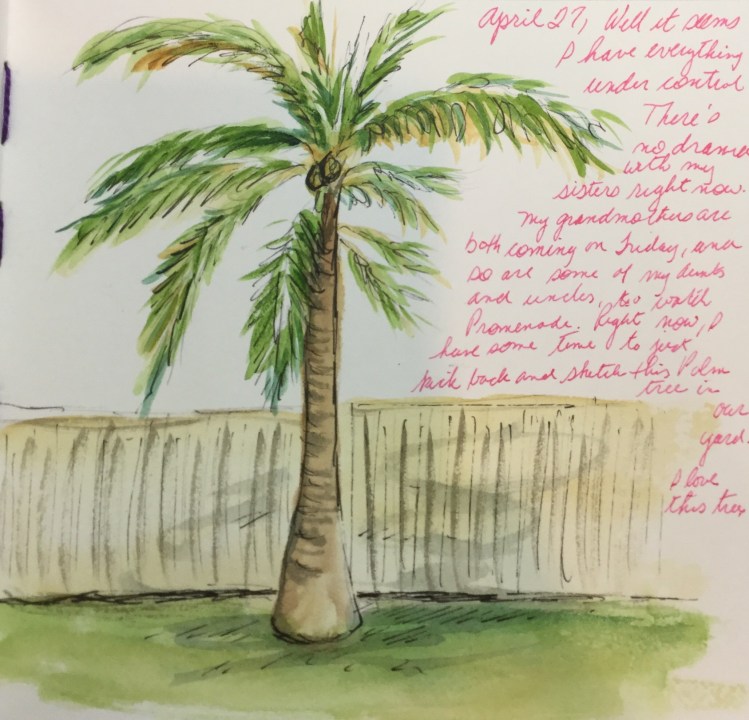 April 27, Well it seems
I have everything
under control
There's
no drama
with my
sisters right now.
my grandmothers are
both coming on Friday, and
so are some of my aunts
and uncles, to watch
Promenade. Right now, I
have some time to just
kick back and sketch this Palm
tree in
our
yard.
I love
this tree